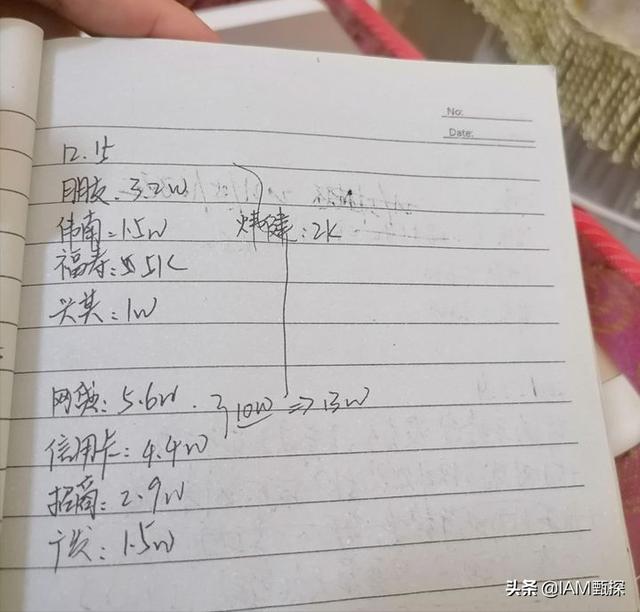 No:
Date:
12.15
朋友:3.2W
伟南:1.5W
炜健:2K
福寿:5.51K
兴其:1W
网贷:5.6W
10W => 13W
信用卡:4.4W
招商:2.9W
广发:1.5W
头条 @IAM甄探